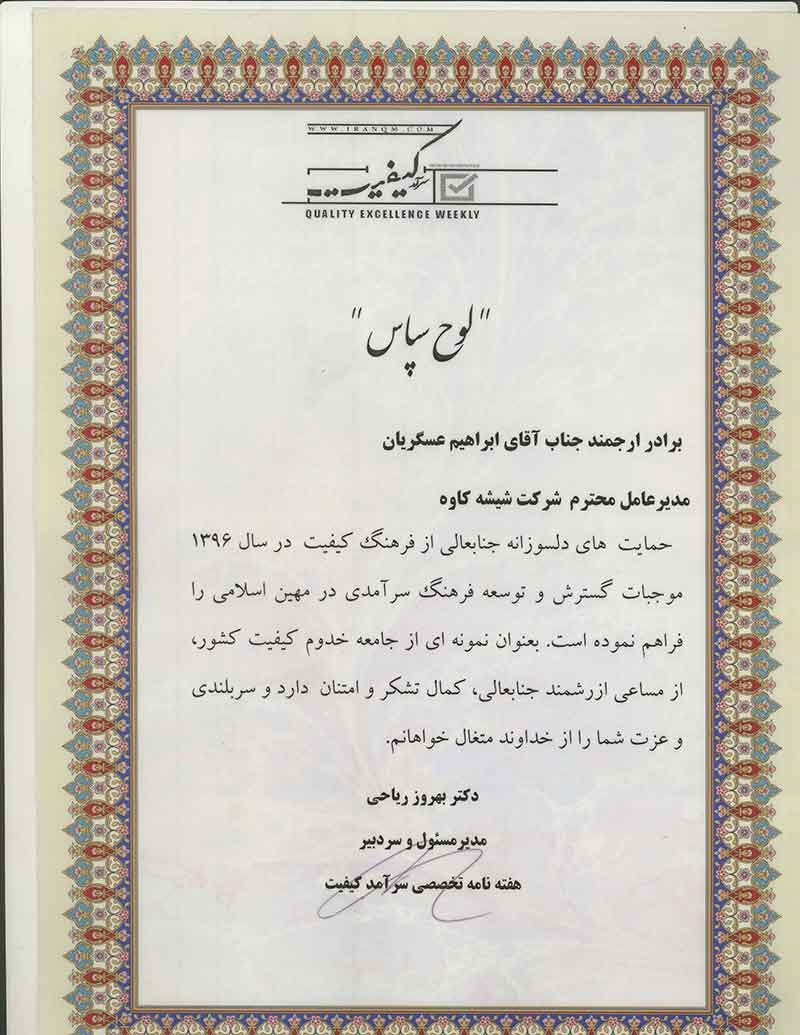 WWW.IRANQM.COM
سرآمد کیفیت
QUALITY EXCELLENCE WEEKLY
"لوح سپاس"
برادر ارجمند جناب آقای ابراهیم عسگریان
مدیرعامل محترم شرکت شیشه کاوه
حمایت های دلسوزانه جنابعالی از فرهنگ کیفیت در سال ۱۳۹۶
موجبات گسترش و توسعه فرهنگ سرآمدی در مهین اسلامی را
فراهم نموده است. بعنوان نمونه ای از جامعه خدوم کیفیت کشور،
از مساعی ازرشمند جنابعالی، کمال تشکر و امتنان دارد و سربلندی
و عزت شما را از خداوند متغال خواهانم.
دکتر بهروز ریاحی
مدیرمسئول و سردبیر
هفته نامه تخصصی سرآمد کیفیت